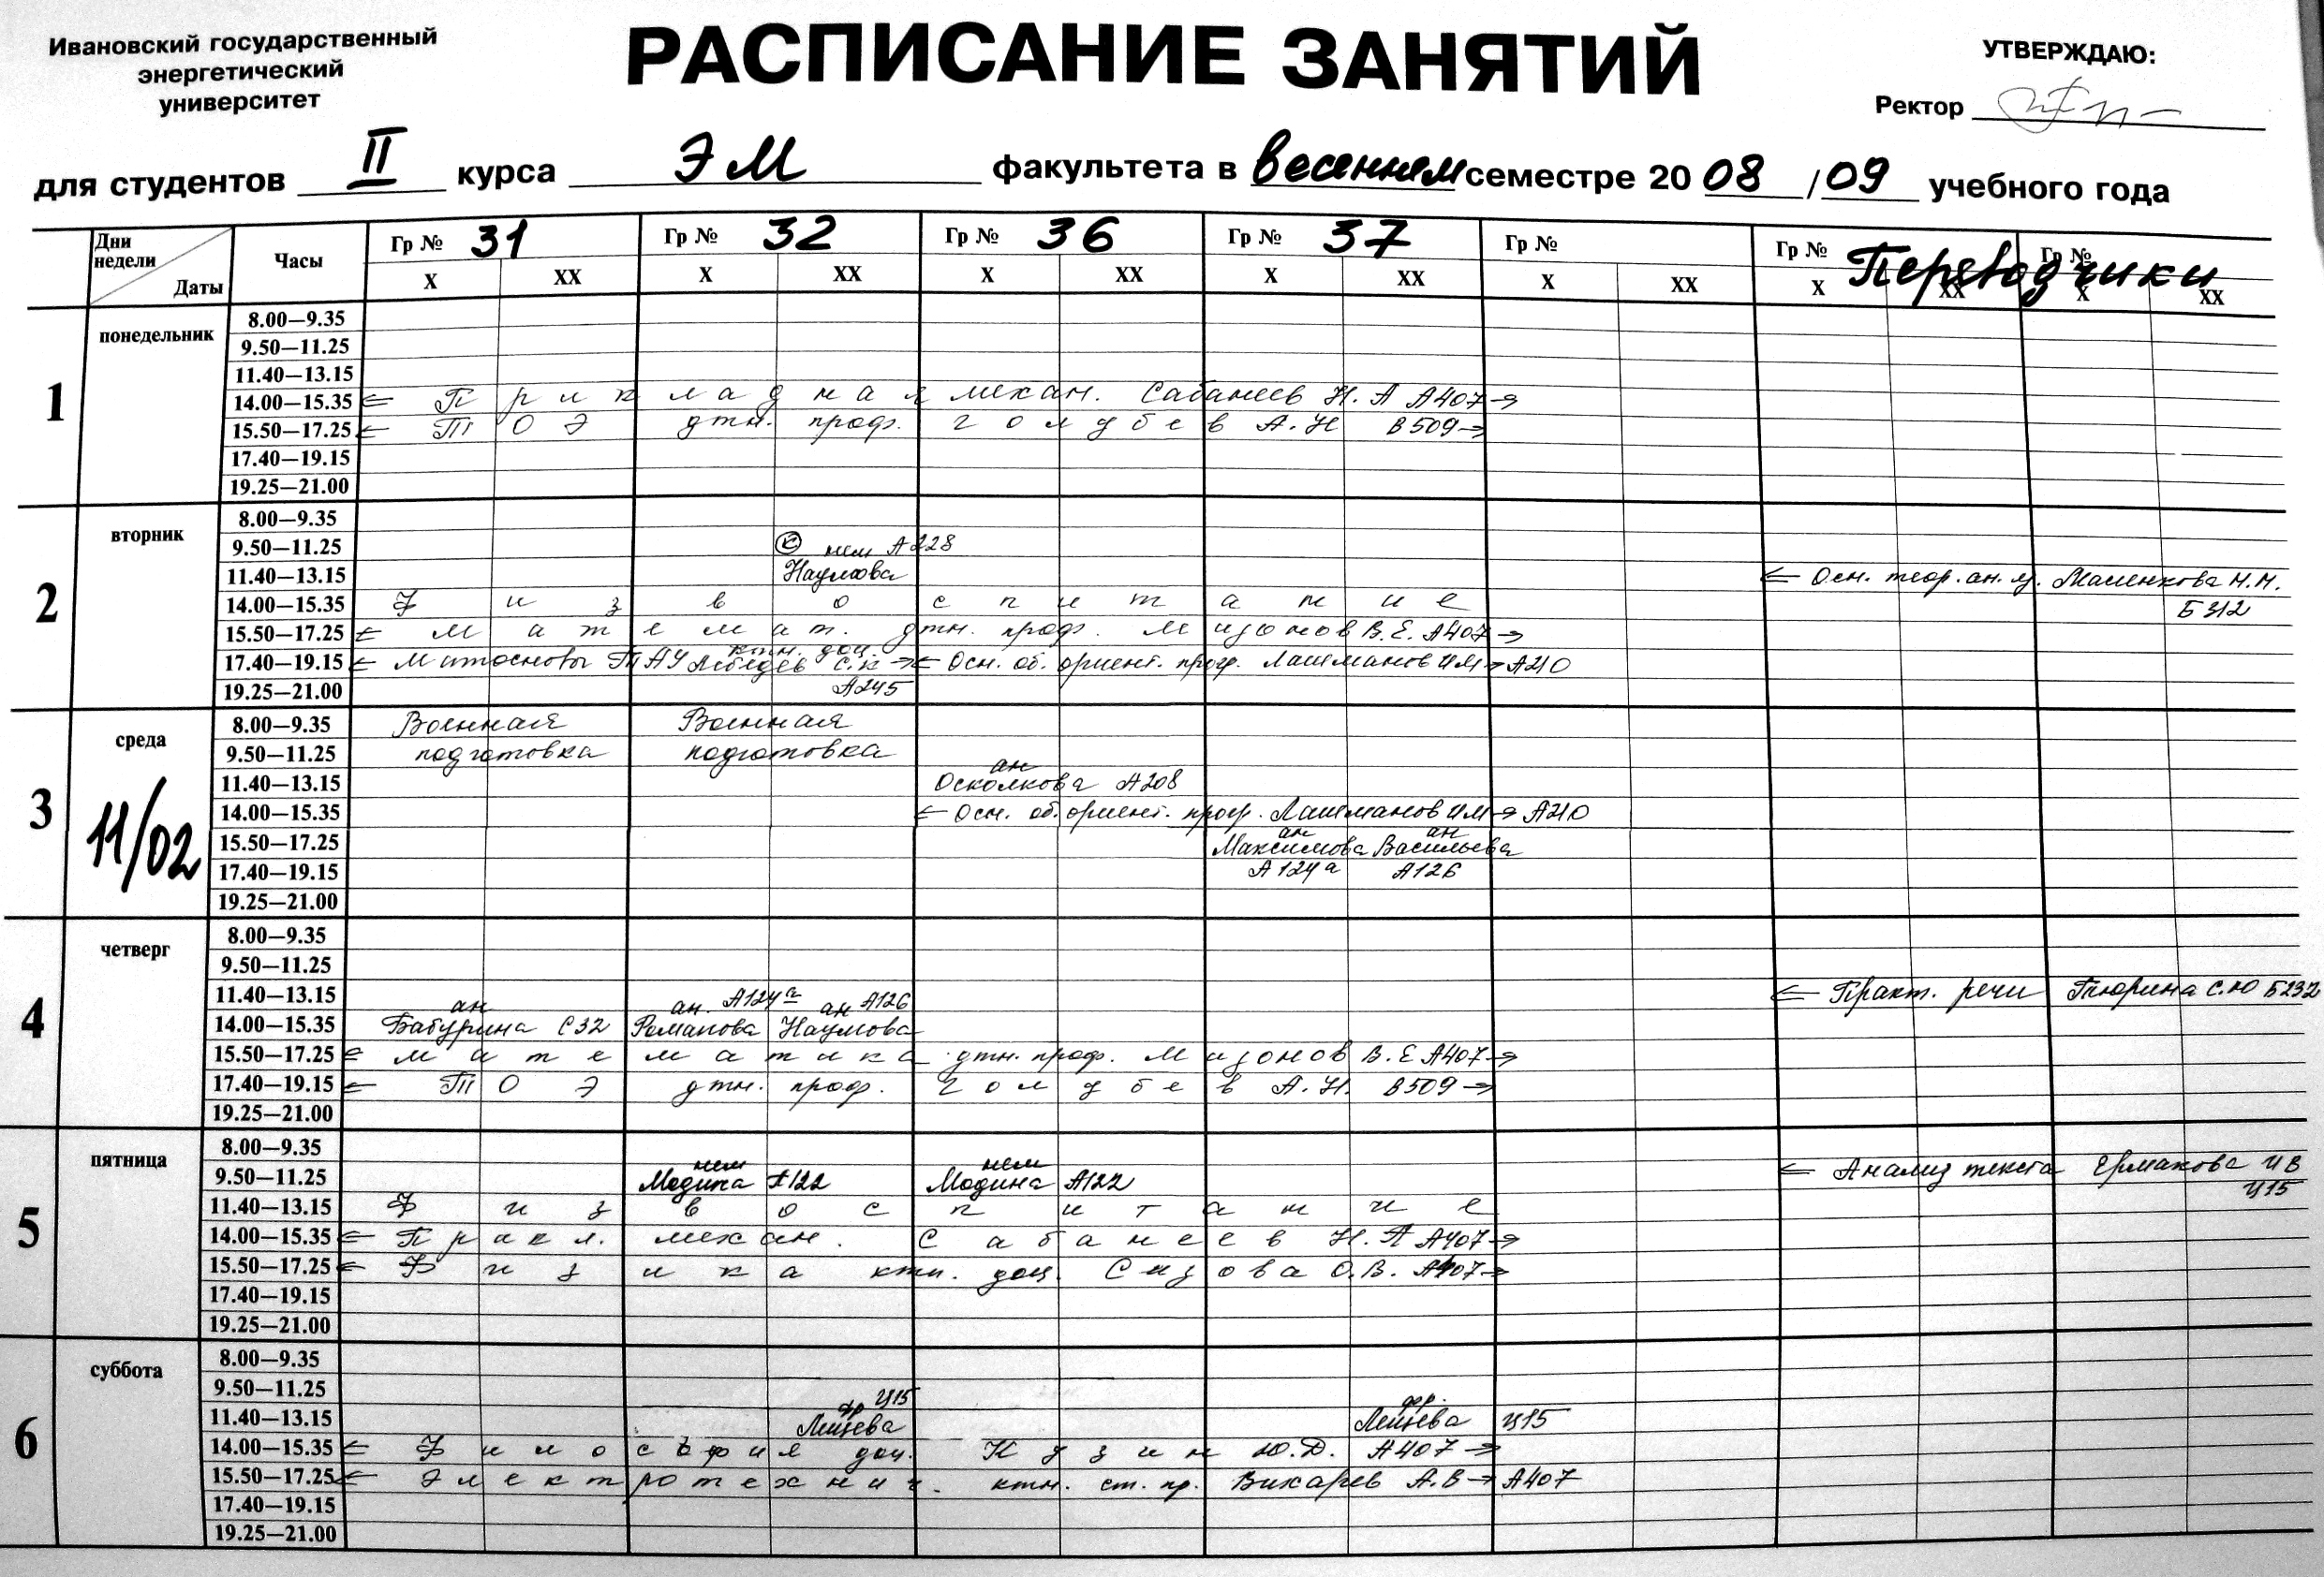 Ивановский государственный
энергетический
университет
РАСПИСАНИЕ ЗАНЯТИЙ
УТВЕРЖДАЮ:
Ректор
для студентов II курса ЭМ факультета в весеннем семестре 20 08 / 09 учебного года
Дни недели Даты Часы Гр № 31 Гр № 32 Гр № 36 Гр № 37 Гр № Гр № Гр № Переводчики
X XX X XX X XX X XX X XX X XX X XX
1 понедельник
8.00—9.35
9.50—11.25
11.40—13.15
14.00—15.35 ← Прикладная механ. Сабанеев Н.А А407 →
15.50—17.25 ← ТОЭ дтн. проф. Голубев А.Н В509 →
17.40—19.15
19.25—21.00
2 вторник
8.00—9.35
9.50—11.25 нем А228
11.40—13.15 Наумова ← Осн. теор. ан. яз. Маленкова Н.М.
14.00—15.35 Физвоспитание Б312
15.50—17.25 ← математ. дтн. проф. Мизонов В.Е. А407 →
17.40—19.15 ← Матосновы ТАУ ктн. доц. Лебедев С.К → ← Осн. об. ориент. прогр. Лашманов И М → А210
19.25—21.00 А245
3 среда 11/02
8.00—9.35 Военная Военная
9.50—11.25 подготовка подготовка
11.40—13.15 ан Осколкова А208
14.00—15.35 ← Осн. об. ориент. прогр. Лашманов И М → А210
15.50—17.25 ан Максимова ан Васильева
17.40—19.15 А124а А126
19.25—21.00
4 четверг
8.00—9.35
9.50—11.25
11.40—13.15 ан ан. А124а ан А126 ← Практ. речи Тюрина С.Ю Б232
14.00—15.35 Бабурина С32 Романова Наумова
15.50—17.25 ← математика дтн. проф. Мизонов В.Е А407 →
17.40—19.15 ← ТОЭ дтн. проф. Голубев А.Н. В509 →
19.25—21.00
5 пятница
8.00—9.35
9.50—11.25 нем Модина А122 нем Модина А122 ← Анализ текста Ермакова И В
11.40—13.15 Физвоспитание Ц15
14.00—15.35 ← Прикл. механ. Сабанеев Н.А А407 →
15.50—17.25 ← Физика ктн. доц. Сизова О.В. А407 →
17.40—19.15
19.25—21.00
6 суббота
8.00—9.35
9.50—11.25
11.40—13.15 фр Ц15 Лещева фр. Лещева Ц15
14.00—15.35 ← Философия доц. Кузин Ю.Д. А407 →
15.50—17.25 ← Электротехнич. ктн. ст. пр. Викарев А.В → А407
17.40—19.15
19.25—21.00